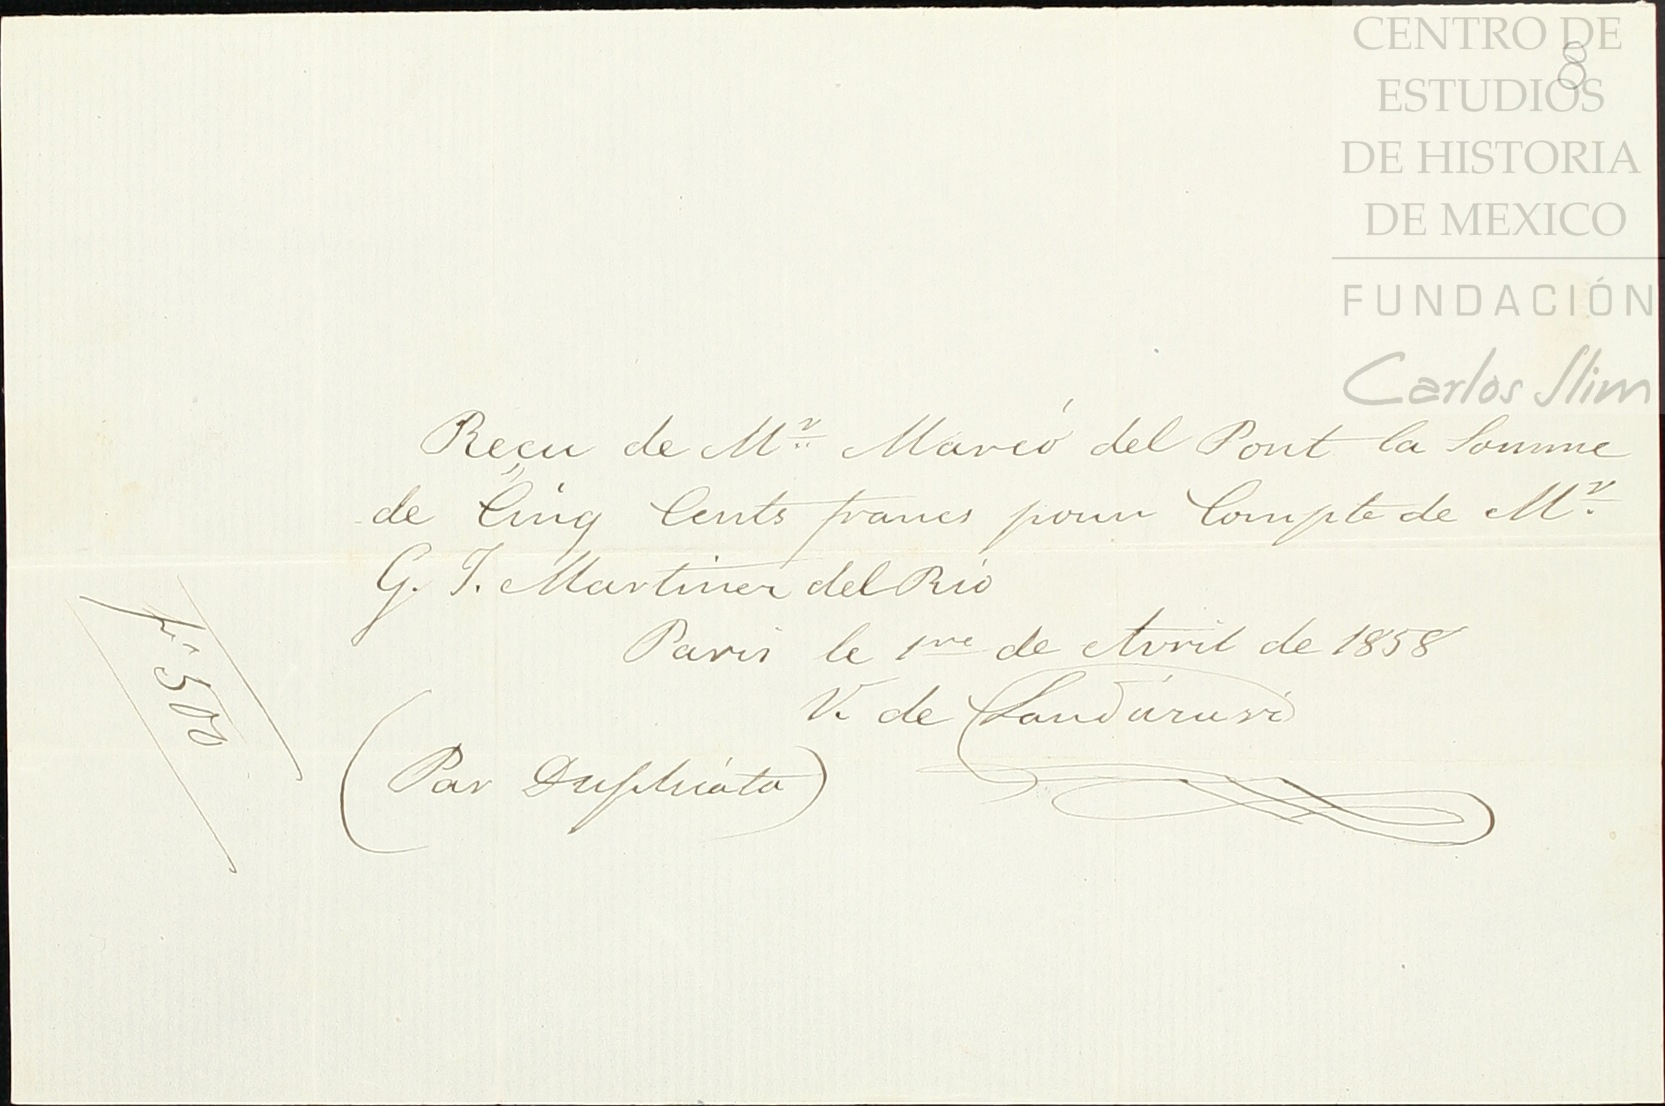 8
CENTRO DE
ESTUDIOS
DE HISTORIA
DE MEXICO
FUNDACIÓN
Carlos Slim
Reçu de Mr. Marcó del Pont la Somme
de Cinq Cents francs pour Compte de Mr.
G. J. Martinez del Rio
Paris le 1re de Avril de 1858
V. de Landáruri
(Par Duplicáta)
fr 500